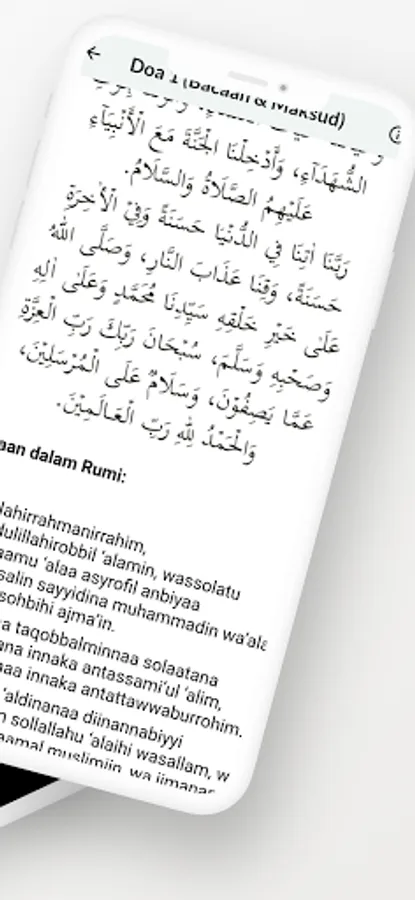 Doa 1 (Bacaan & Maksud)
الشُّهَدَآءِ، وَأَدْخِلْنَا الْجَنَّةَ مَعَ الْأَنْبِيَآءِ
عَلَيْهِمُ الصَّلَاةُ وَالسَّلَامُ.
رَبَّنَا اٰتِنَا فِي الدُّنْيَا حَسَنَةً وَفِيْ الْأٰخِرَةِ
حَسَنَةً، وَقِنَا عَذَابَ النَّارِ، وَصَلَّى اللّٰهُ
عَلٰى خَيْرِ خَلْقِهِ سَيِّدِنَا مُحَمَّدٍ وَعَلٰى اٰلِهِ
وَصَحْبِهِ وَسَلَّمَ، سُبْحَانَ رَبِّكَ رَبِّ الْعِزَّةِ
عَمَّا يَصِفُوْنَ، وَسَلَامٌ عَلَى الْمُرْسَلِيْنَ،
وَالْحَمْدُ لِلّٰهِ رَبِّ الْعَالَمِيْنَ.
aan dalam Rumi:
lahirrahmanirrahim,
dulillahirobbil ‘alamin, wassolatu
aamu ‘alaa asyrofil anbiyaa
salin sayyidina muhammadin wa‘ala
sohbihi ajma‘in.
a taqobbalminnaa solaatana
ana innaka antassami‘ul ‘alim,
aa innaka antattawwaburrohim.
‘aldinanaa diinannabiyyi
n sollallahu ‘alaihi wasallam, w
aamal muslimiin, wa iimanan